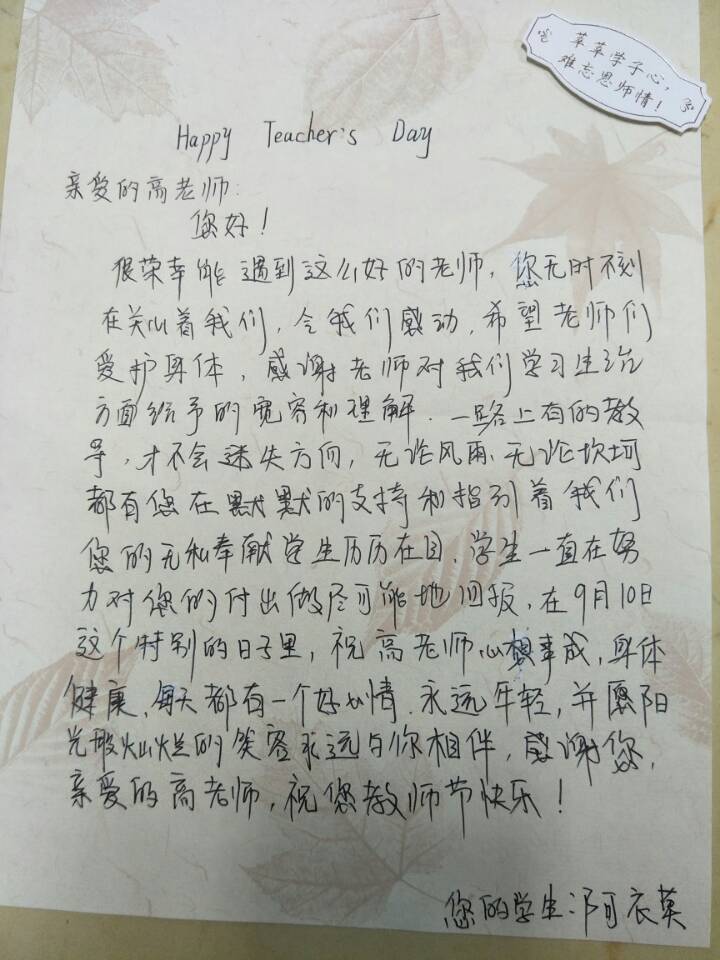 莘莘学子心，
难忘恩师情！
Happy Teacher's Day
亲爱的高老师：
您好！
很荣幸能遇到这么好的老师，您无时不刻
在关心着我们，令我们感动，希望老师们
爱护身体，感谢老师对我们学习生活
方面给予的宽容和理解．一路上有的教
导，才不会迷失方向，无论风雨、无论坎坷
都有您在默默的支持和指引着我们
您的无私奉献学生历历在目．学生一直在努
力对您的付出做尽可能地回报，在9月10日
这个特别的日子里，祝高老师心想事成，身体
健康，每天都有一个好心情．永远年轻，并愿阳
光般灿烂的笑容永远与你相伴，感谢您，
亲爱的高老师，祝您教师节快乐！
您的学生：阿衣